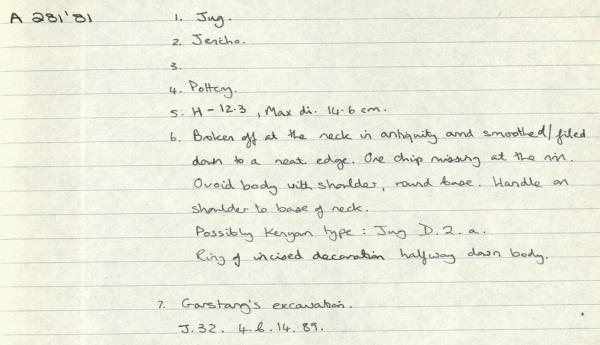 A 281'81
1. Jug.
2. Jericho.
3.
4. Pottery.
5. H - 12.3, Max di. 14.6 cm.
6. Broken off at the neck in antiquity and smoothed/filed
down to a neat edge. One chip missing at the rim.
Ovoid body with shoulder, round base. Handle on
shoulder to base of neck.
Possibly Kenyon type: Jug D.2.a.
Ring of incised decoration halfway down body.
7. Garstang's excavation.
J.32. 4.b.14.89.